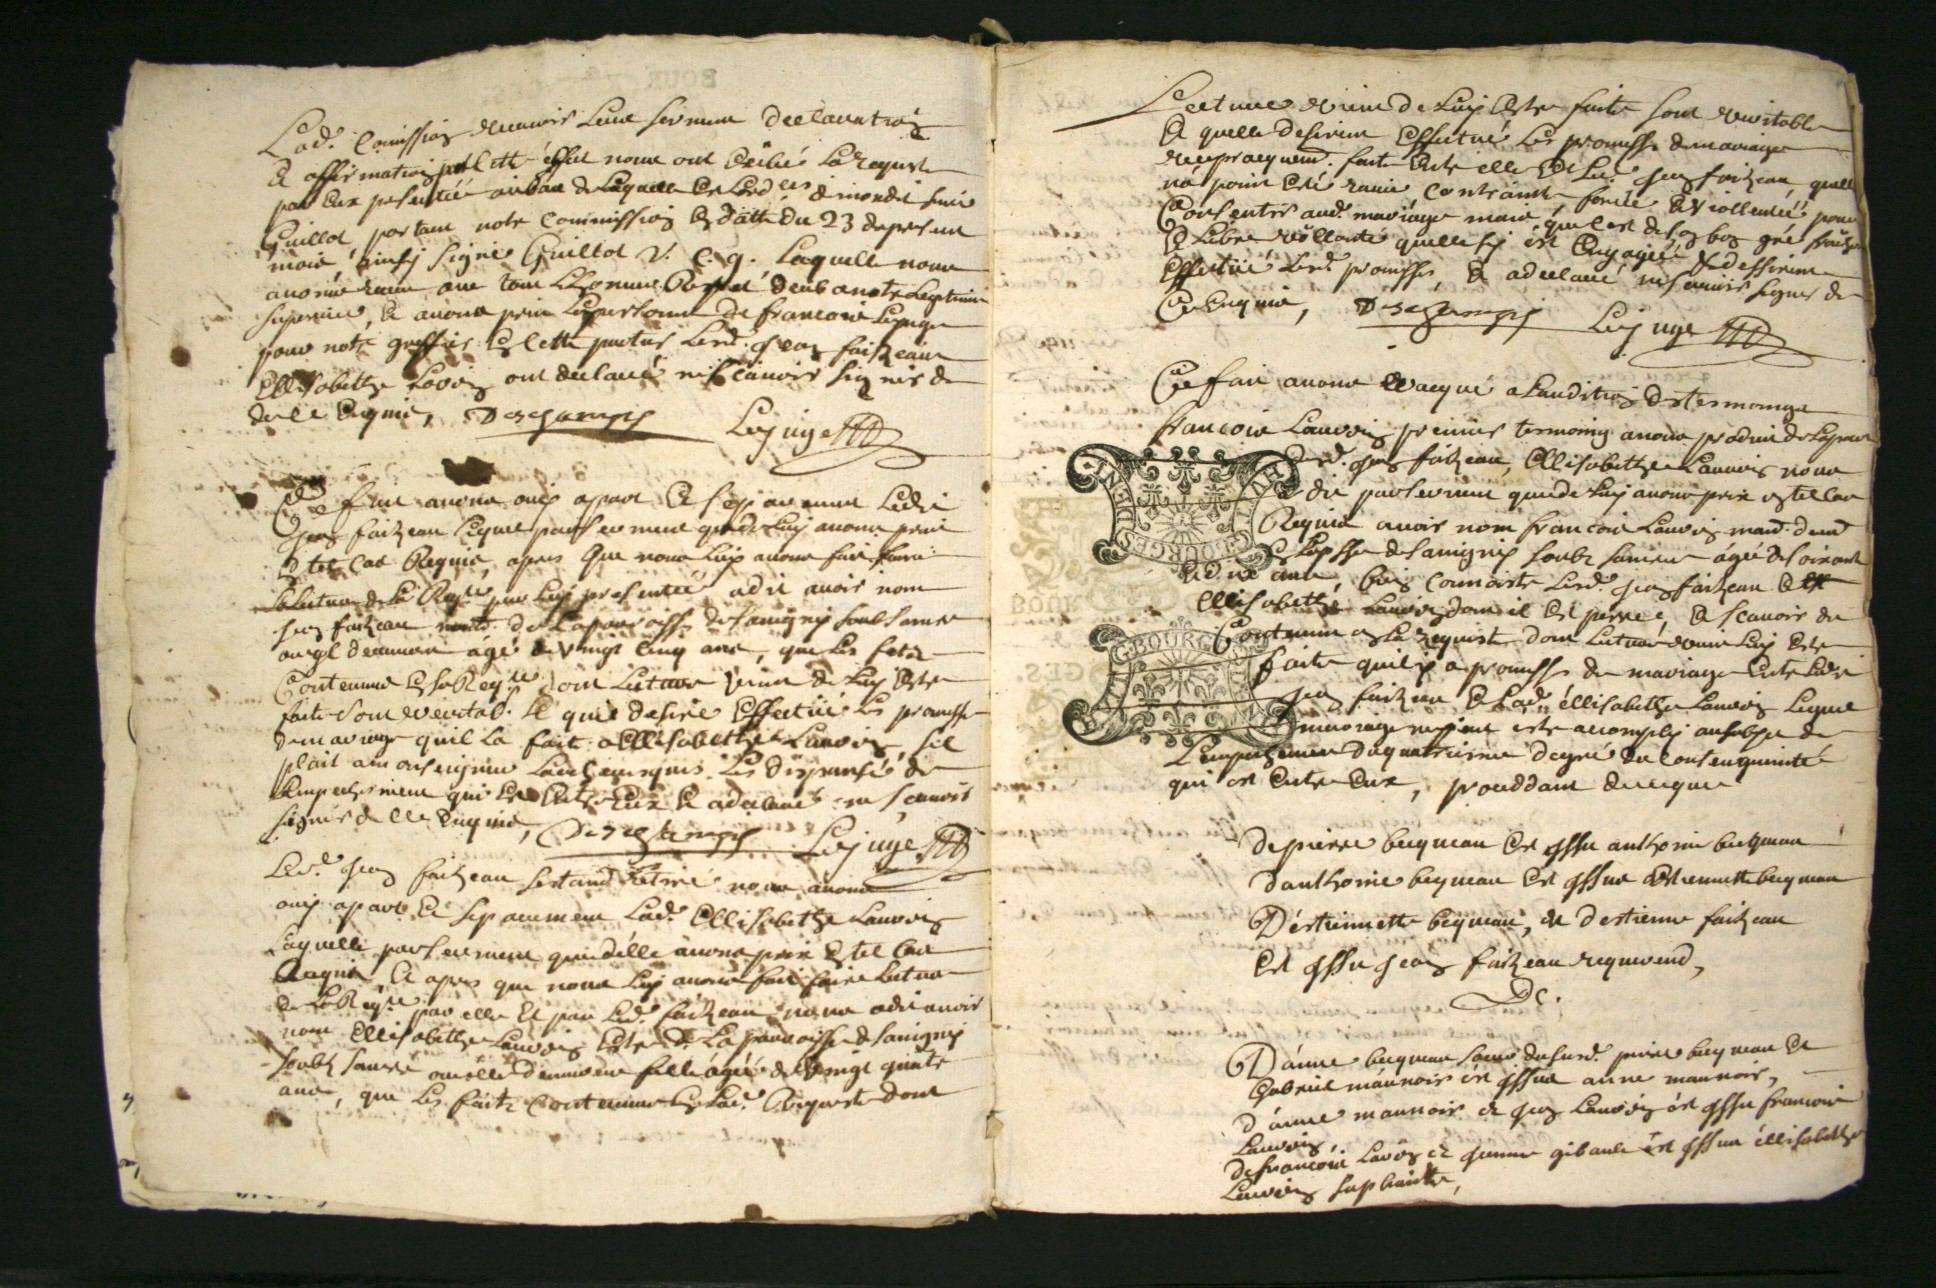 Lad. Comission recevoir leur serment declaration
& affirmation pour cett effet nous ont exibés la requeste
par eux presentée au bas de laquelle est l'ord. de mondit sieur
Guillot, portant notre commission en datte du 23 du present
mois, ainsy signé Guillot V. e. g. laquelle nous
avons receu avec tout l'honneur & respect deub a notre legitime
superieur, & avons pris la personne de francois Lejuge
pour notre greffier en cette partie lesd. Jean faiteau
Ellisabetthe Lauvois ont declaré ne scavoir signer de
de ce enquis, Deschamps Lejuge
Ce fait avons ouy apart & separement ledit
Jean faiteau lequel par serment que de luy avons pris
en tel cas requis, apres que nous luy avons fait faire
la lecture de la Reqte par luy presentée a dit avoir nom
Jean faiteau de la parroisse de Savigny soub Sancerre
ou il demeure agé de vingt cinq ans, que les faits
Contenus en sa Reqte dont lecture vient de luy estre
faite sont veritab. & que desire effectuer les promesse
de mariage quil a fait a Ellisabetthe Lauvois, sil
plait a monseigneur l'archevesque les dispenser de
l'empechement qui est entre eux & a declaré ne scavoir
signer de ce enquis, Deschamps Lejuge
Led. Jean faiteau sestand retiré nous avons
ouy apart & separement lad. Ellisabetthe Lauvois
laquelle par serment que d'elle avons pris en tel cas
requis & apres que nous luy avons fait faire lecture
de la Reqte par elle & par led. faiteau nous a dit avoir
nom Ellisabetthe Lauvois estre de la parroisse de Savigny
soubz Sancerre ou elle demeure fille agée de vingt quatre
ans, que les faits contenus en lad. Requeste dont
Lecture vient de luy estre faite sont veritable
& quelle desire effectuer les promesse de mariage
reciproquemt. faite entre elle & led. Jean faiteau, quelle
na point esté ravie contrainte, forcée & viollentée pour
Consentir aud. mariage mais que c'est de son bon gré franche
& libre vollonté quelle sy est engagée & desire
effectuer lesd. promesse, & a declaré ne scavoir signer de
Ce enquis, Deschamps Lejuge
Ce fait avons vacqué a l'audition des tesmoings
francois Lauvois premier tesmoing a nous produit de la part
desd. Jean faiteau, Ellisabetthe Lauvois nous a
dit par serment que de luy avons pris en tel cas
Requis avoir nom francois Lauvois mand. demt
en la psse de Savigny soubz Sancerre agé de soixante
& dix ans, bien connoistre lesd. Jean faiteau &
Ellisabetthe Lauvois dont il est perre, & scavoir du
Contenu en la requeste dont lecture vient luy estre
faite quil y a promesse de mariage entre ledit
Jean faiteau & lad. ellisabetthe Lauvois lequel
mariage ne peut estre accomply au subjet de
L'empechement du quatrieme degré de consenguinité
qui est entre eux, proceddant de ce que
De pierre becqueau est yssu anthoine becqueau
d'anthoine becqueau est yssue estiennette becqueau
D'estiennette becqueau, et d'estienne faiteau
est yssu Jean faiteau requerend,
De.
D'anne becqueau soeur dususd. pierre becqueau et
Gabriel mannoir est yssue anne mannoir,
d'anne mannoir et Jean Lauvois est yssu francois
Lauvois,
De francois Lauvois et Jeanne gibault est yssue ellisabetthe
Lauvois supliante,